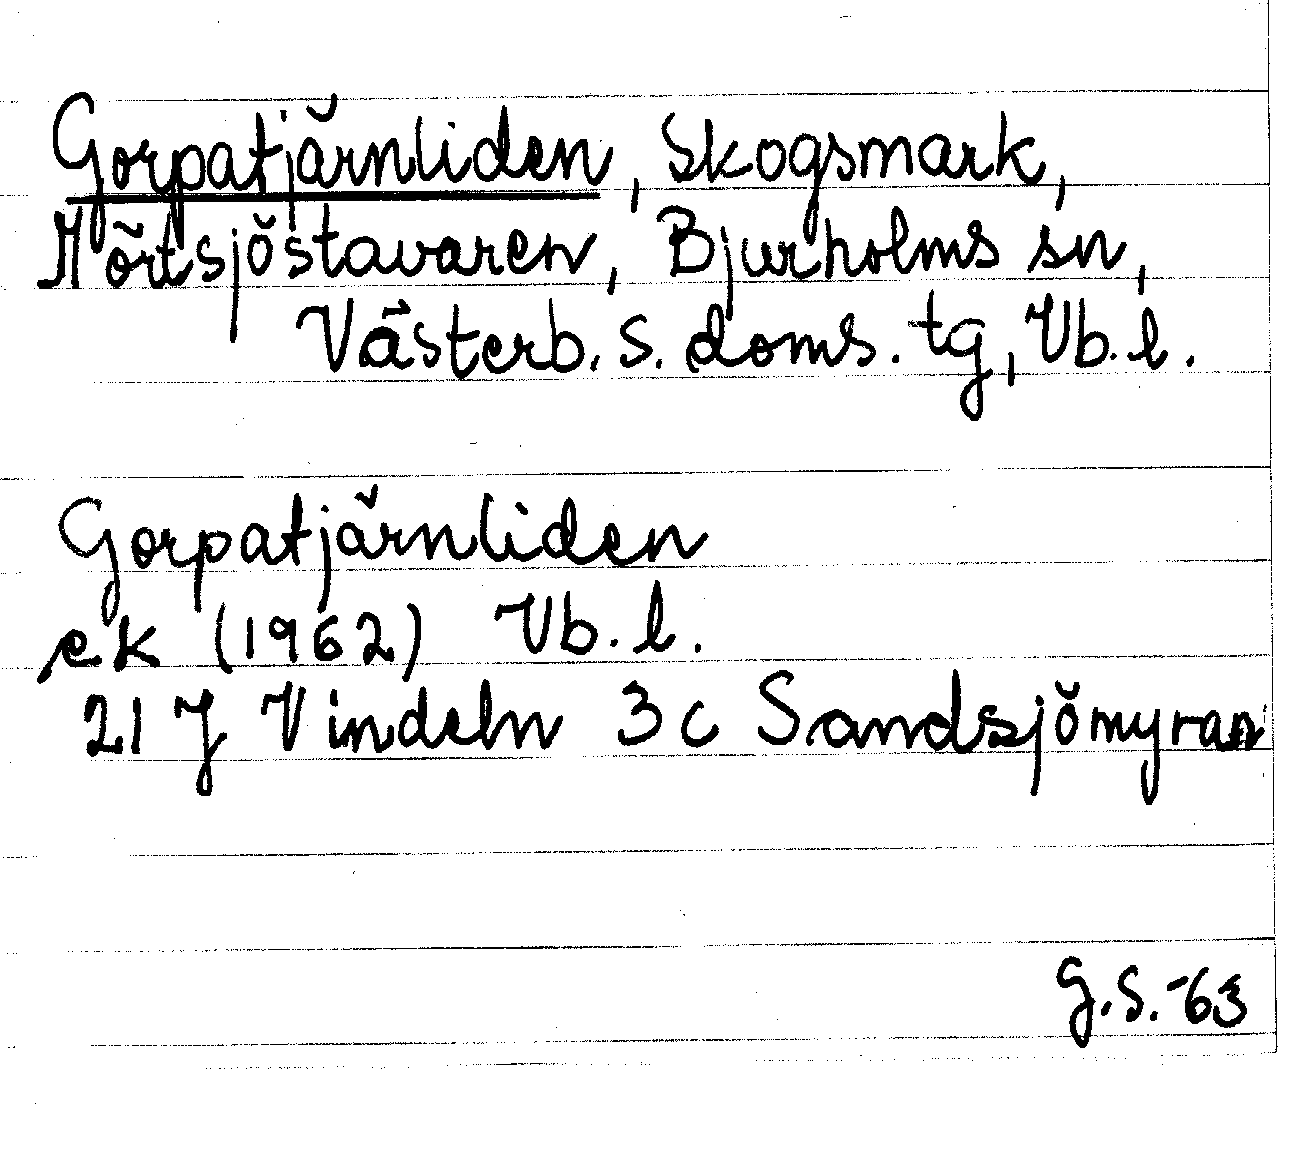 Gorpatjärnliden, Skogsmark,
Mörtsjöstavaren, Bjurholms sn,
Västerb. s. doms. tg, Vb. l.
Gorpatjärnliden
ek (1962) Vb. l.
21 J Vindeln 3c Sandsjömyran
G.S.-63